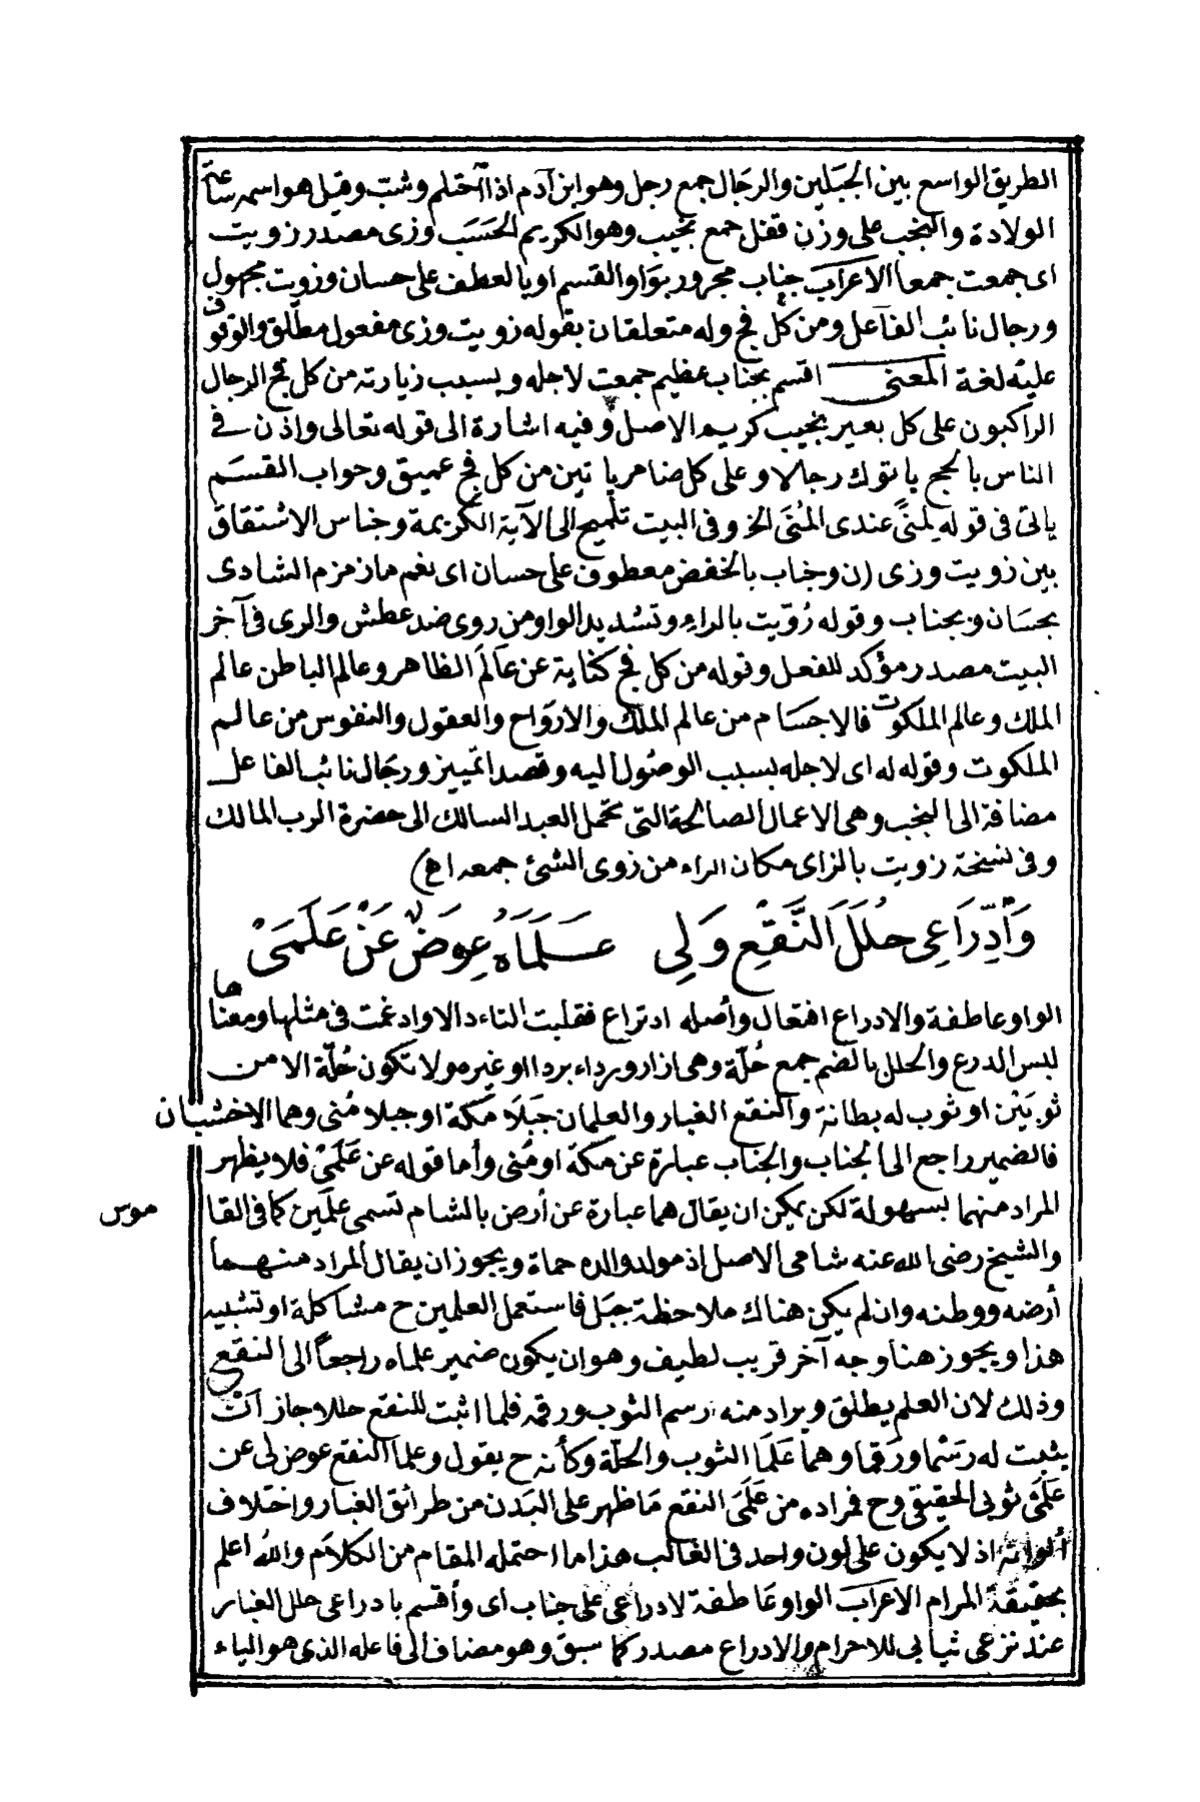 الطريق الواسع بين الجبلين والرجال جمع رجل وهو ابن آدم اذا احتلم وشب وقيل هو اسمه ساعة
الولادة والنجب على وزن قفل جمع نجيب وهو الكريم الحَسَب وزى مصدر زويت
اى جمعت جمعا الاعراب جناب مجرور بواو القسم او بالعطف على حسان وزويت مجهول
ورجال نائب الفاعل ومن كل فج وله متعلقان بقوله زويت وزى مفعول مطلق والوقوف
عليه لغة المعنى اقسم بجناب عظيم جمعت لاجله وبسبب زيارته من كل فج الرجال
الراكبون على كل بعير نجيب كريم الاصل وفيه اشارة الى قوله تعالى واذن فى
الناس بالحج يا توك رجالا وعلى كل ضامر يا تين من كل فج عميق وجواب القسم
يا تى فى قوله لمنىً عندى المُنَى الخ وفى البيت تلميح الى الآية الكريمة وجناس الاشتقاق
بين زويت وزى (ن وجناب بالخفض معطوف على حسان اى نغم ما زمزم الشادى
بحسان وبجناب وقوله رُوّيت بالراء وتشديد الواو من روى ضد عطش والرى فى آخر
البيت مصدر مؤكد للفعل وقوله من كل فج كناية عن عالم الظاهر وعالم الباطن عالم
الملك وعالم الملكوت فالاجسام من عالم الملك والارواح والعقول والنفوس من عالم
الملكوت وقوله له اى لاجله بسبب الوصول اليه وقصد التمييز ورجال نائب الفاعل
مضافة الى النجب وهى الاعمال الصالحة التى تحمل العبد السالك الى حضرة الرب المالك
وفى نسخة زويت بالزاى مكان الراء من زوى الشئ جمعه اهـ)
وَاَدِّرَاعِى حُلَلَ النَّقْعِ وَلِى عَلَمَاهُ عِوَضٌ عَنْ عَلَمَىْ
الواو عاطفة والادراع افتعال وأصله ادتراع فقلبت التاء دالا وادغمت فى مثلها ومعناها
لبس الدرع والحلل بالضم جمع حُلّة وهى ازار ورداء برد او غيره ولا تكون حُلّة الا من
ثوبَيْن او ثوب له بطانة والنقع الغبار والعلمان جَبَلَا مَكة او جبلا مُنى وهما الاخشبان
فالضمير راجع الى الجناب والجناب عبارة عن مكة او مُنى وأما قوله عن عَلَمَىْ فلا يظهر
المراد منهما بسهولة لكن يمكن ان يقال هما عبارة عن أرض بالشام تسمى علمين كما فى القاموس
والشيخ رضى الله عنه شامى الاصل اذ مولد والده حماة ويجوز ان يقال المراد منهما
أرضه ووطنه وان لم يكن هناك ملاحظة جبل فاستعمل العلمين ح مشاكلة او تشبيه
هذا ويجوز هنا وجه آخر قريب لطيف وهو ان يكون ضمير علماه راجعاً الى النقع
وذلك لان العلم يطلق ويراد منه رسم الثوب ورقمه فلما اثبت للنقع حللا جاز ان
يثبت له رَسْما ورَقما وهما عَلَمَا الثوب والحلّة وكأنه ح يقول وعلما النقع عوض لى عن
عَلَمَىْ ثوبى الحقيقى وح فمراده من عَلَمَى النقع ما ظهر على البَدن من طرائق الغبار واختلاف
ألوانه اذ لا يكون على لون واحد فى الغالب هذا ما احتمله المقام من الكلام والله اعلم
بحقيقة المرام الاعراب الواو عاطفة لادراعى على جناب اى وأقسم بادراعى حلل الغبار
عند نزعى ثيابى للاحرام والادراع مصدر كما سبق وهو مضاف الى فاعله الذى هو الياء